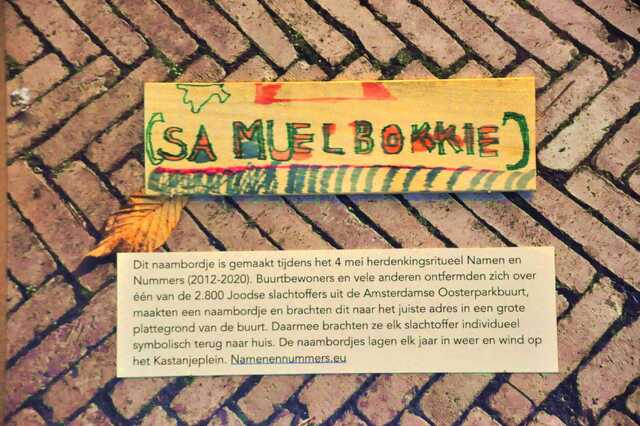 (SAMUEL BOKKIE)
Dit naambordje is gemaakt tijdens het 4 mei herdenkingsritueel Namen en
Nummers (2012-2020). Buurtbewoners en vele anderen ontfermden zich over
één van de 2.800 Joodse slachtoffers uit de Amsterdamse Oosterparkbuurt,
maakten een naambordje en brachten dit naar het juiste adres in een grote
plattegrond van de buurt. Daarmee brachten ze elk slachtoffer individueel
symbolisch terug naar huis. De naambordjes lagen elk jaar in weer en wind op
het Kastanjeplein. Namenennummers.eu